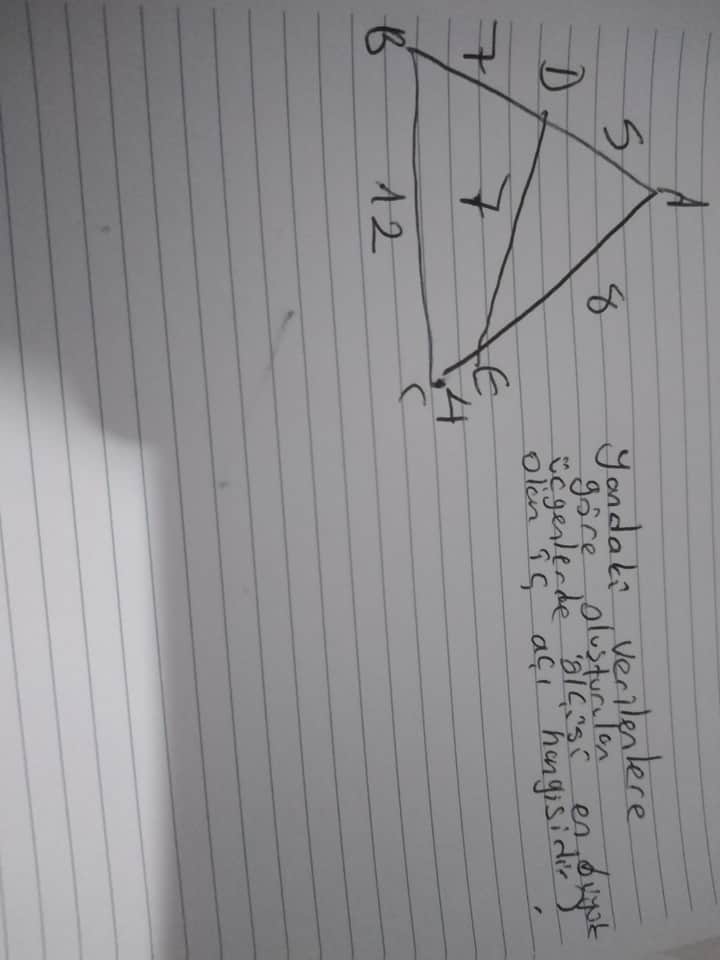 A
5
8
D
7
7
E
B
12
4
C
Yandaki verilenlere
göre oluşturulan
üçgenlerde ölçüsü en büyük
olan iç açı hangisidir.